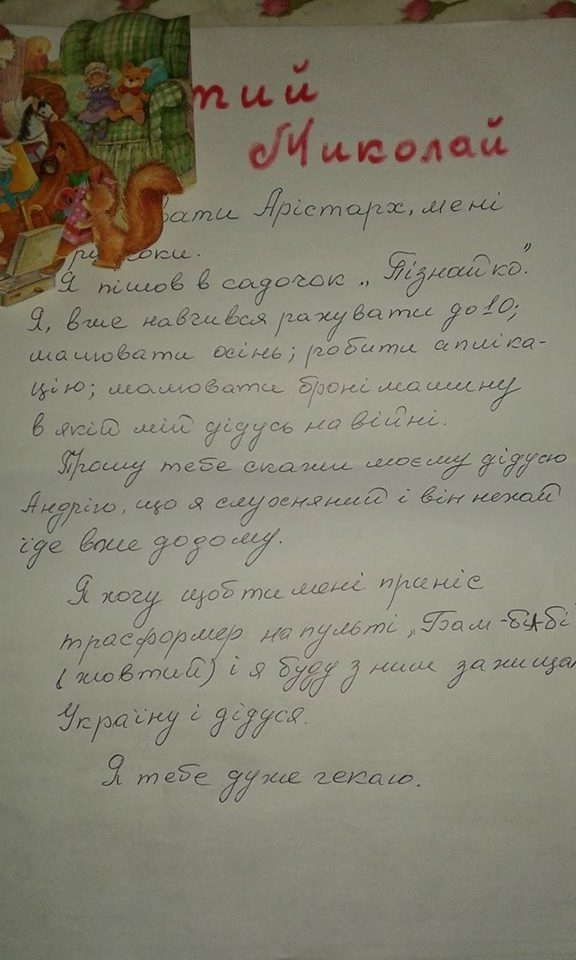 тий
Миколай
вати Арістарх, мені
роки.
Я пішов в садочок „Пізнайко".
Я, вже навчився рахувати до 10;
малювати осінь; робити апліка-
цію; малювати бронімашину
в якій мій дідусь на війні.
Прошу тебе скажи моєму дідусю
Андрію, що я слухняний і він нехай
їде вже додому.
Я хочу щоб ти мені приніс
трасформер на пульті „Бам-бул-бі
(жовтий) і я буду з ним захища
Україну і дідуся.
Я тебе дуже чекаю.